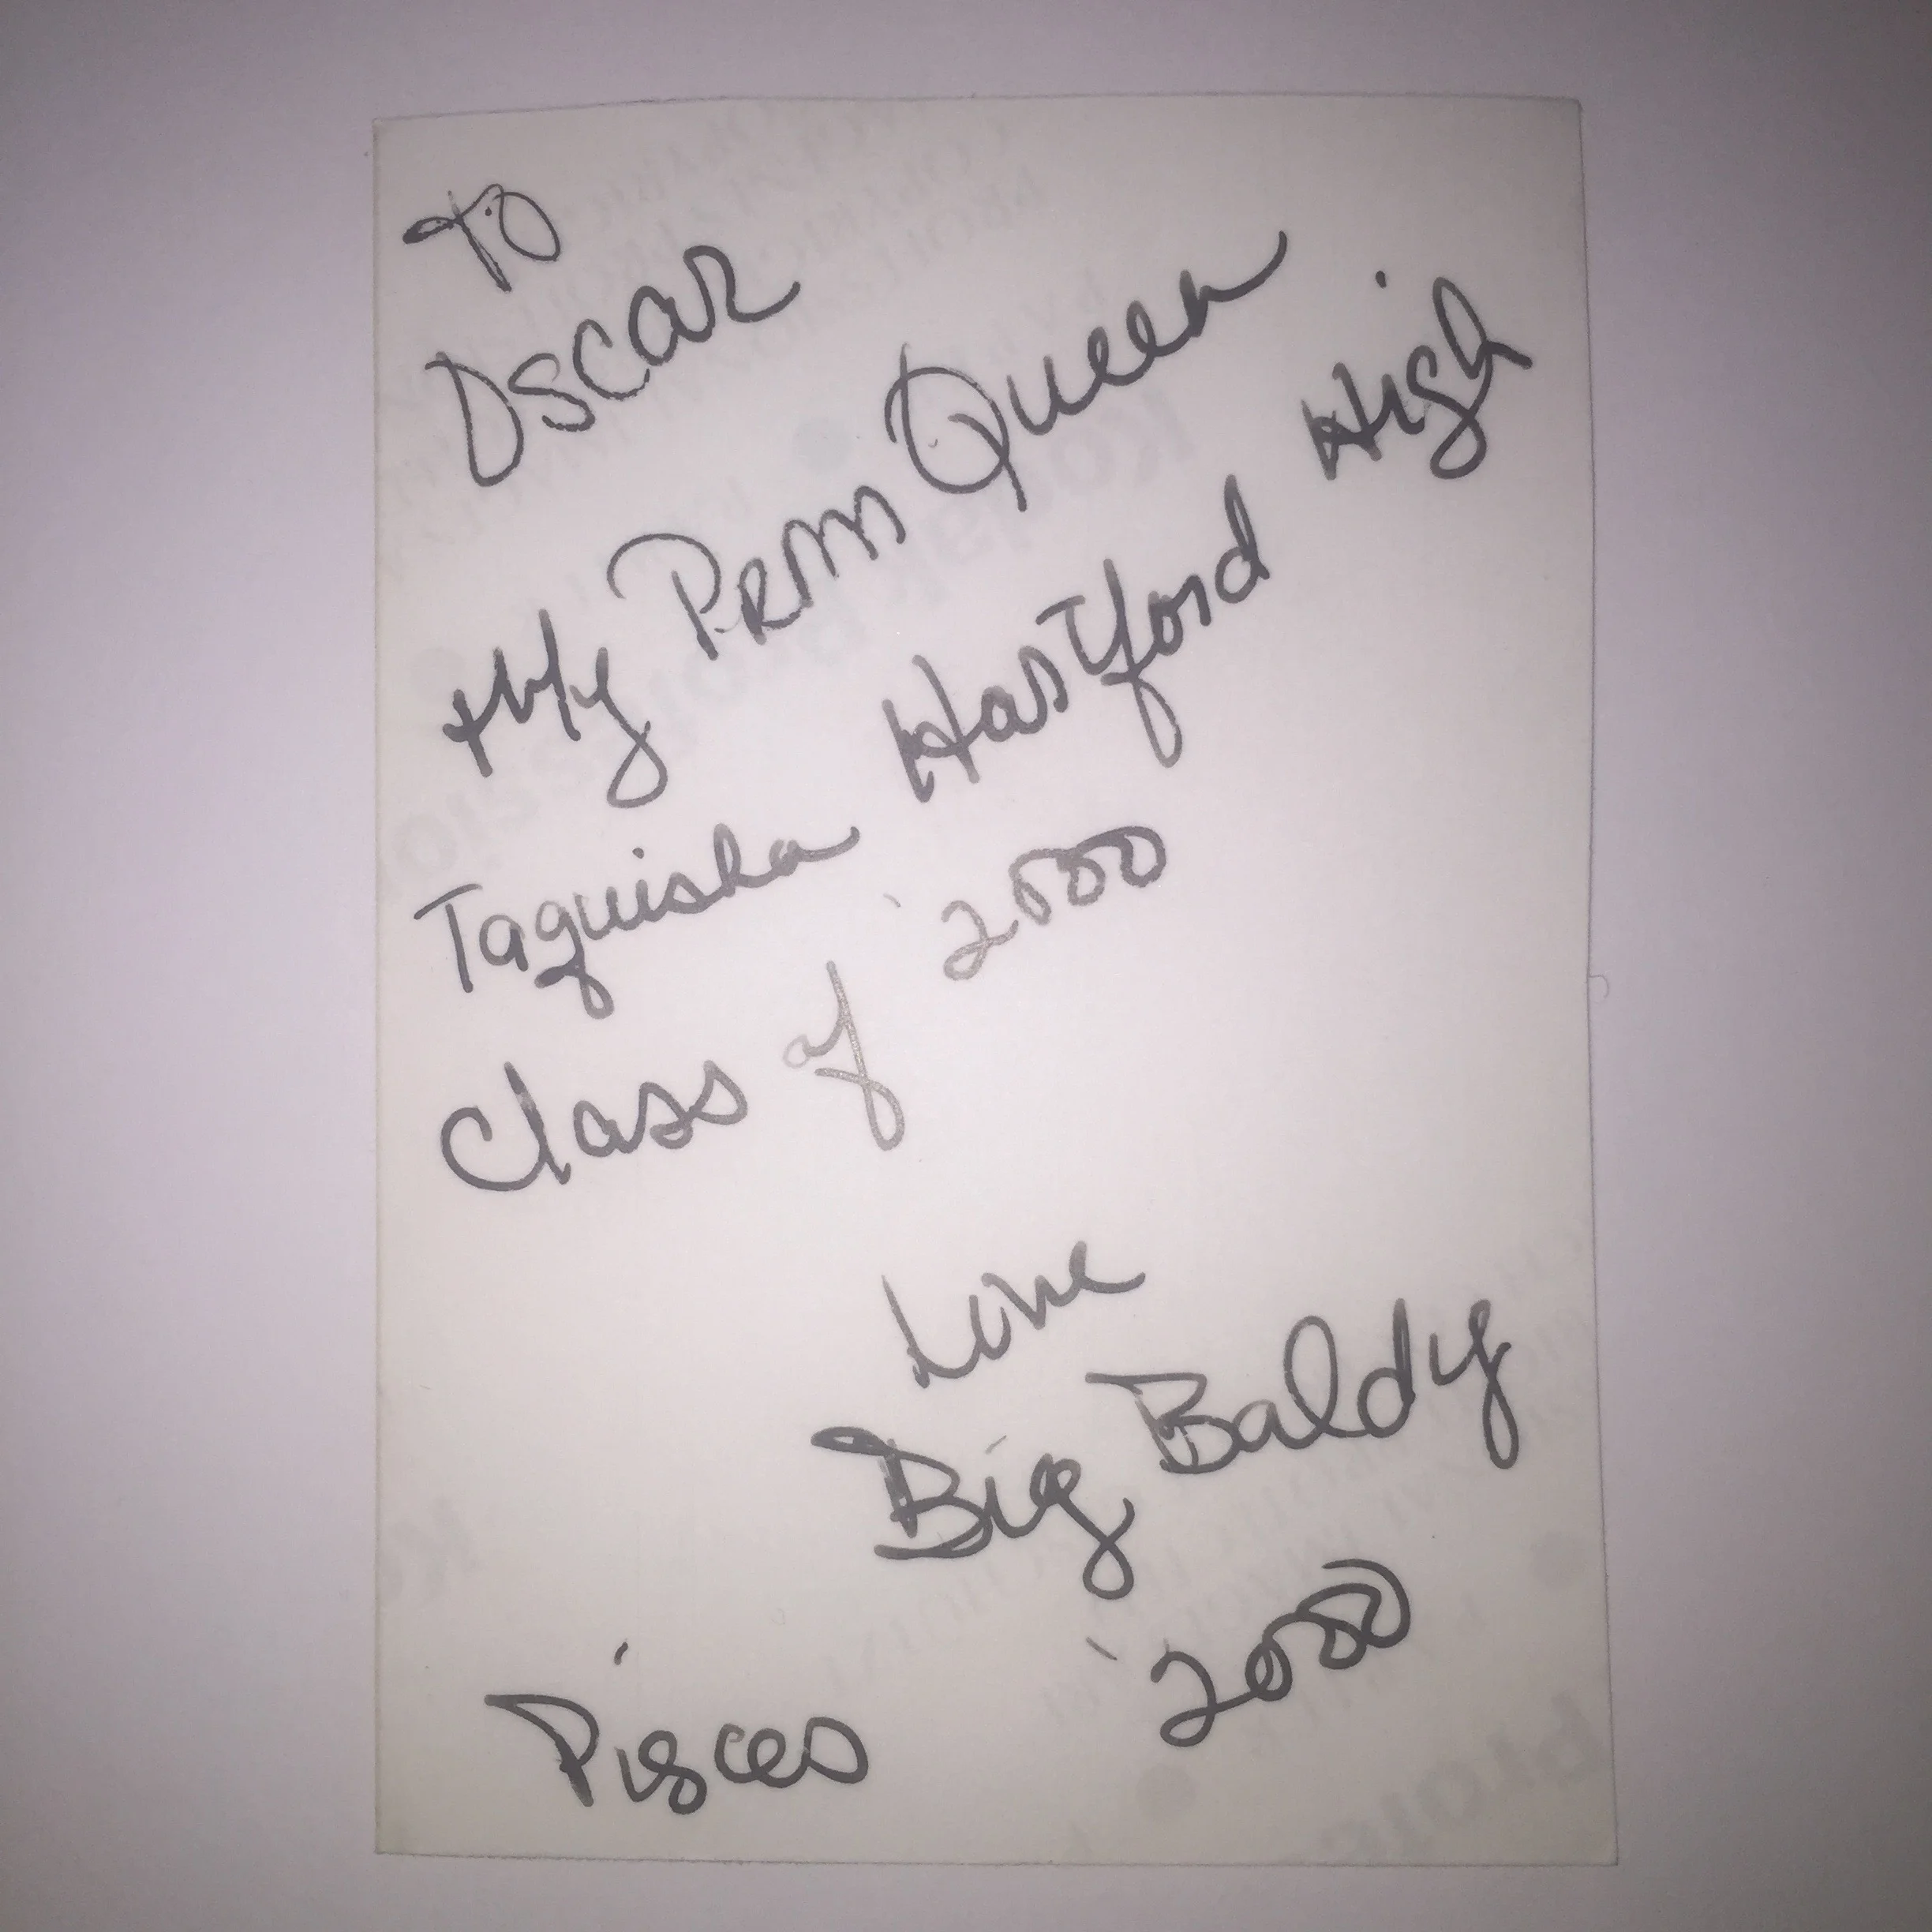 To
Oscar
My Prom Queen
Taquisha Hartford High
Class of '2000
Love
Big Baldy
Pisces '2000